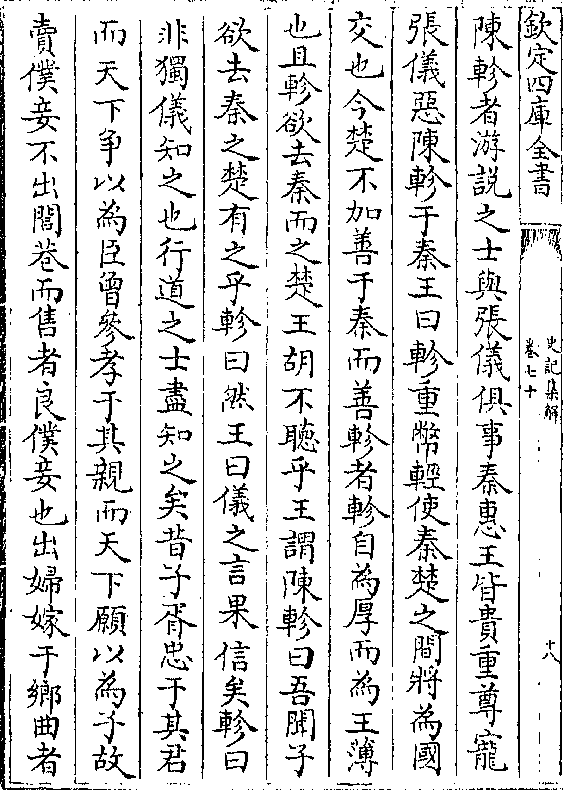 欽定四庫全書
史記集解
卷七十
十八
陳軫者游説之士與張儀俱事秦惠王皆貴重尊寵
張儀惡陳軫于秦王曰軫重幣輕使秦楚之間將為國
交也今楚不加善于秦而善軫者軫自為厚而為王薄
也且軫欲去秦而之楚王胡不聽乎王謂陳軫曰吾聞子
欲去秦之楚有之乎軫曰然王曰儀之言果信矣軫曰
非獨儀知之也行道之士盡知之矣昔子胥忠于其君
而天下爭以為臣曾參孝于其親而天下願以為子故
賣僕妾不出閭巷而售者良僕妾也出婦嫁于鄉曲者